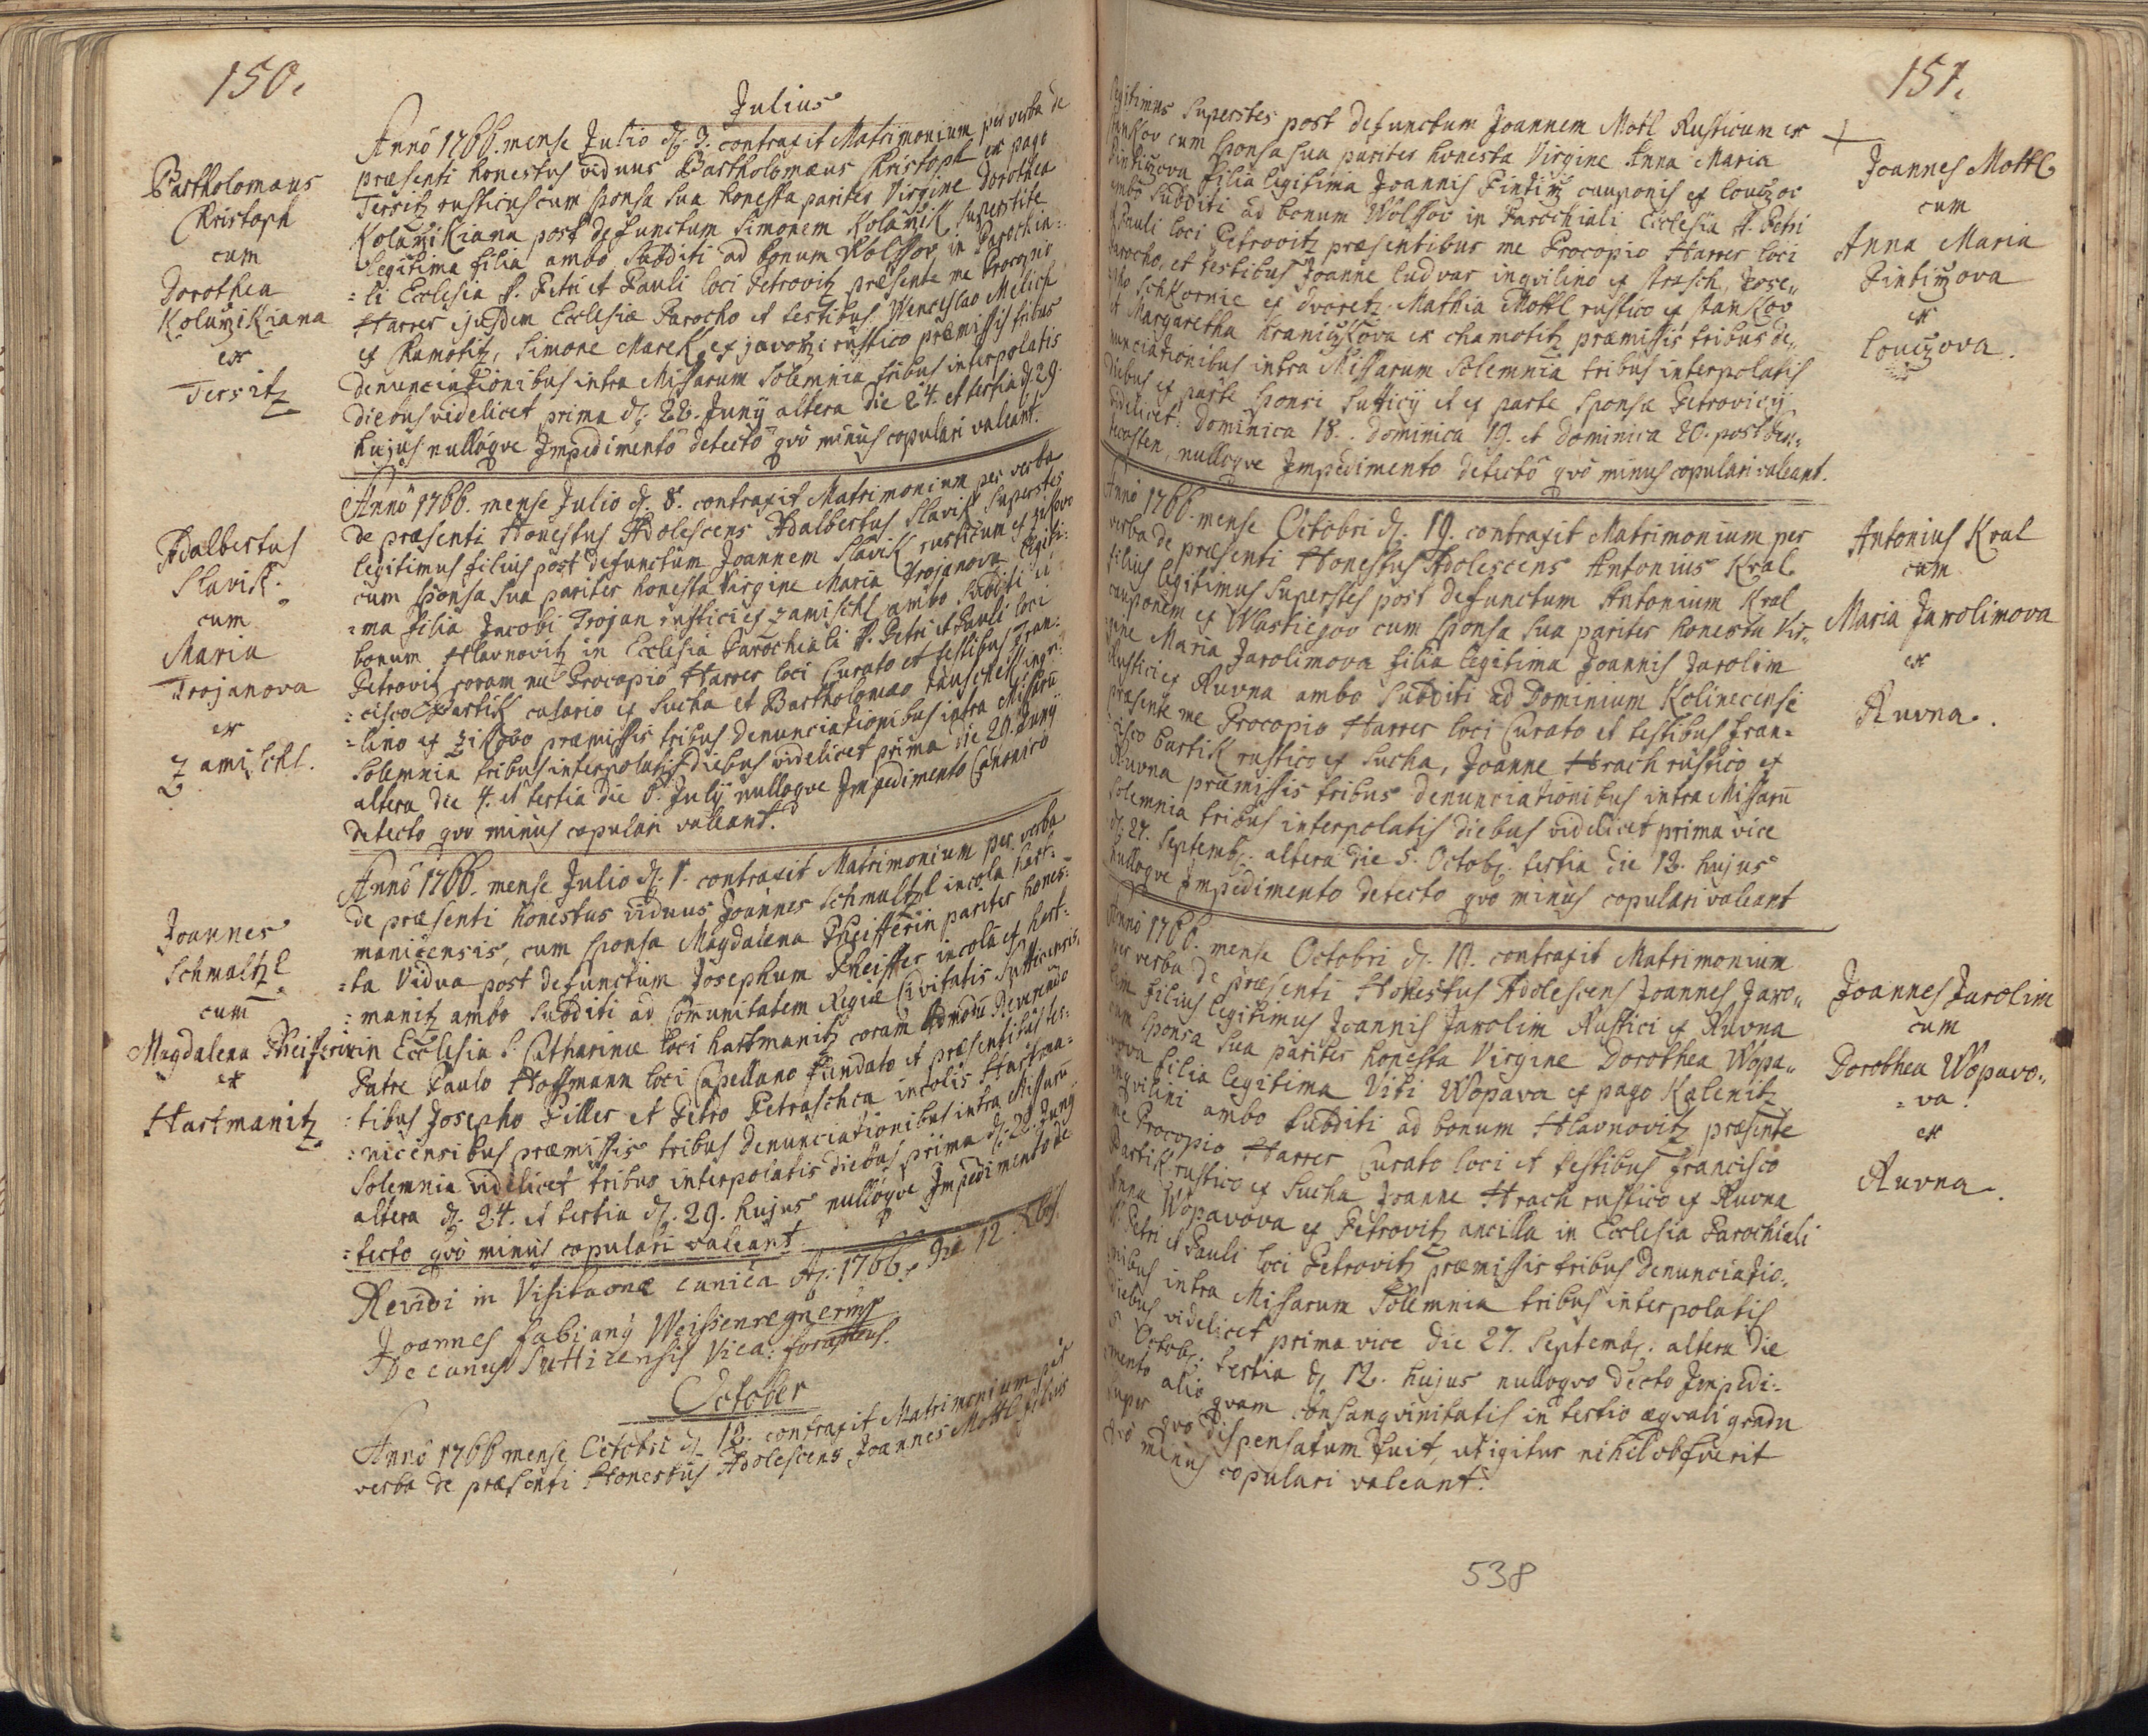 150.
Julius
Bartholomæus
Christoph
cum
Dorothea
Kolaużikiana
ex
Tersitz
Anno 1766. mense Julio d. 3. contraxit Matrimonium per verba de
præsenti honestus viduus Bartholomæus Christoph ex pago
Tersitz rusticus cum sponsa sua honesta pariter Virgine Dorothea
post defunctum Simonem superstite
legitima filia ambo subditi ad bonum Wolssov in Parochia=
=li Ecclesia S. Petri et Pauli loci Petrovitz præsente me Procopio
Harrer ejusdem Ecclesiæ Parocho et testibus Wenceslao Melich
ex Kamotitz, Simone Marek ex rustico præmissis tribus
denunciationibus intra Missarum Solemnia tribus interpolatis
diebus videlicet prima d. 22. Junÿ altera die 24. et tertia d. 29.
hujus nulloqve Impedimento detecto qvo minus copulari valeant.
Adalbertus
Slavik.
cum
Maria
Trojanova
ex
Zamischl.
Anno 1766. mense Julio d. 8. contraxit Matrimonium per verba
de præsenti Honestus Adolescens Adalbertus Slavik superstes
legitimus filius post defunctum Joannem Slavik rusticum ex
cum sponsa sua pariter honesta Virgine Maria Trojanova legiti=
=ma filia Jacobi Trojan rustici ex Zamischl ambo subditi a
bonum Hlavnovitz in Ecclesia Parochiali S. Petri et Pauli loci
Petrovitz coram me Procopio Harrer loci Curato et testibus Fran=
=cisco Bartik casario ex Sucha et Bartholomæo inqvi=
=lino ex præmissis tribus denunciationibus intra Missarū
Solemnia tribus interpolatis diebus videlicet prima die 29. Junÿ
altera die 4. et tertia die 6. Julÿ nulloqve Impedimento Canonico
detecto qvo minus copulari valeant.
Joannes
Schmaltzl
cum
Magdalena Pheifferin
ex
Hartmanitz
Anno 1766. mense Julio d. 1. contraxit Matrimonium per verba
de præsenti honestus viduus Joannes Schmaltzl incola Hart=
manicensis, cum sponsa Magdalena Pheifferin pariter hones=
=ta Vidua post defunctum Josephum Pheiffer incola ex Hart=
=manitz ambo subditi ad Comunitatem Regiæ Civitatis Sutticensis
in Ecclesia S. Catharinæ loci Hartmanitz coram Admodū Reverendo
Patre Paulo Hoffmann loci Capellano Fundato et præsentibus tes=
=tibus Josepho Piller et Petro Petraschca incolis Hartma=
=nicensibus præmissis tribus denunciationibus intra Missarū
Solemnia videlicet tribus interpolatis diebus prima d. 22. Junÿ
altera d. 24. et tertia d. 29. hujus nulloqve Impedimento de=
=tecto qvo minus copulari valeant.
Revidi in Visitaõne Cãnica Aõ. 1766. Die 12. Xbris.
Joannes Fabianÿ Weissenregnerm̃p
Decanus Sutticensis Vica: foraneus.
October
Anno 1766 mense Octobri d. 12. contraxit Matrimonium per
verba de præsenti Honestus Adolescens Joannes Mottl filius
151.
legitimus superstes post defunctum Joannem Motl Rusticum ex
Stankov cum sponsa sua pariter honesta Virgine Anna Maria
filia legitima Joannis cauponis ex
ambo subditi ad bonum Wolssov in Parochiali Ecclesia S. Petri
et Pauli loci Petrovitz præsentibus me Procopio Harrer loci
Parocho, et testibus Joanne Ludvar inqvilino ex Strasch, Jose,,
=pho Schkornic ex Dvoretz. Mathia Mottl rustico ex Stankov
et Margaretha ex Chamotitz præmissis tribus de,,
nunciationibus intra Missarum Solemnia tribus interpolatis
diebus ex parte sponsi Sutticÿ et ex parte sponsa Petrovicÿ
videlicet: Dominica 18. Dominica 19. et Dominica 20. post Pen=
tecosten, nulloqve Impedimento detecto qvo minus copulari valeant.
Joannes Mottl
cum
Anna Maria
ex
Anno 1766. mense Octobri d. 19. contraxit Matrimonium per
verba de præsenti Honestus Adolescens Antonius Kral
filius legitimus superstes post defunctum Antonium Kral
cauponem ex Wlastiegov cum sponsa sua pariter honesta Vir=
gine Maria Jarolimova filia legitima Joannis Jarolim
Rustici ex Ruvna ambo subditi ad Dominium Kolinecense
præsente me Procopio Harrer loci Curato et testibus Fran=
cisco Bartik rustico ex Sucha, Joanne Hrach rustico ex
Ruvna præmissis tribus denunciationibus intra Missarū
Solemnia tribus interpolatis diebus videlicet prima vice
d. 27. Septemb. altera die 5. Octob. tertia die 12. hujus
nulloqve Impedimento detecto qvo minus copulari valeant
Antonius Kral
cum
Maria Jarolimova
ex
Ruvna.
Anno 1766. mense Octobri d. 19. contraxit Matrimonium
per verba de præsenti Honestus Adolescens Joannes Jaro,,
lim filius legitimus Joannis Jarolim Rustici ex Ruvna
cum sponsa sua pariter honesta Virgine Dorothea Wopa,,
vova filia legitima Viti Wopava ex pago Kalenitz
inqvilini ambo subditi ad bonum Hlavnovitz præsente
me Procopio Harrer Curato loci et testibus Francisco
Bartik rustico ex Sucha Joanne Hrach rustico ex Ruvna
Anna Wopavova ex Petrovitz ancilla in Ecclesia Parochiali
S. Petri et Pauli loci Petrovitz præmissis tribus denunciatio,,
nibus intra Missarum Solemnia tribus interpolatis
diebus videlicet prima vice die 27. Septemb. altera die
5 Octob. tertia d. 12. hujus nulloqvo dtecto Impedi=
mento alio qvam consangvinitatis in tertio æqvali gradu
super qvo dispensatum fuit, ut igitur nihil obfuerit
qvo minus copulari valeant.
Joannes Jarolim
cum
Dorothea Wopavo,,
=va
ex
Ruvna.
538